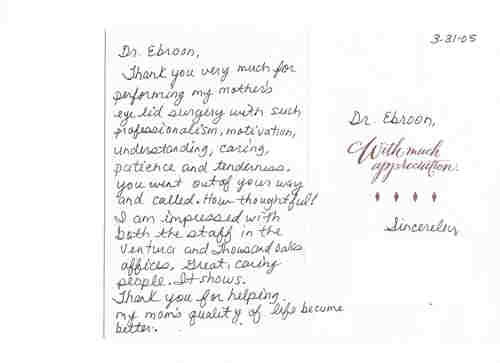 Dr. Ebroon,
Thank you very much for
performing my mother's
eye lid surgery with such
professionalism, motivation,
understanding, caring,
patience and tenderness.
you went out of your way
and called. How thoughtful!
I am impressed with
both the staff in the
Ventura and Thousand Oaks
offices, Great, caring
people. It shows.
Thank you for helping
my mom's quality of life become
better.
3-31-05
Dr. Ebroon,
With much
appreciation.
Sincerely